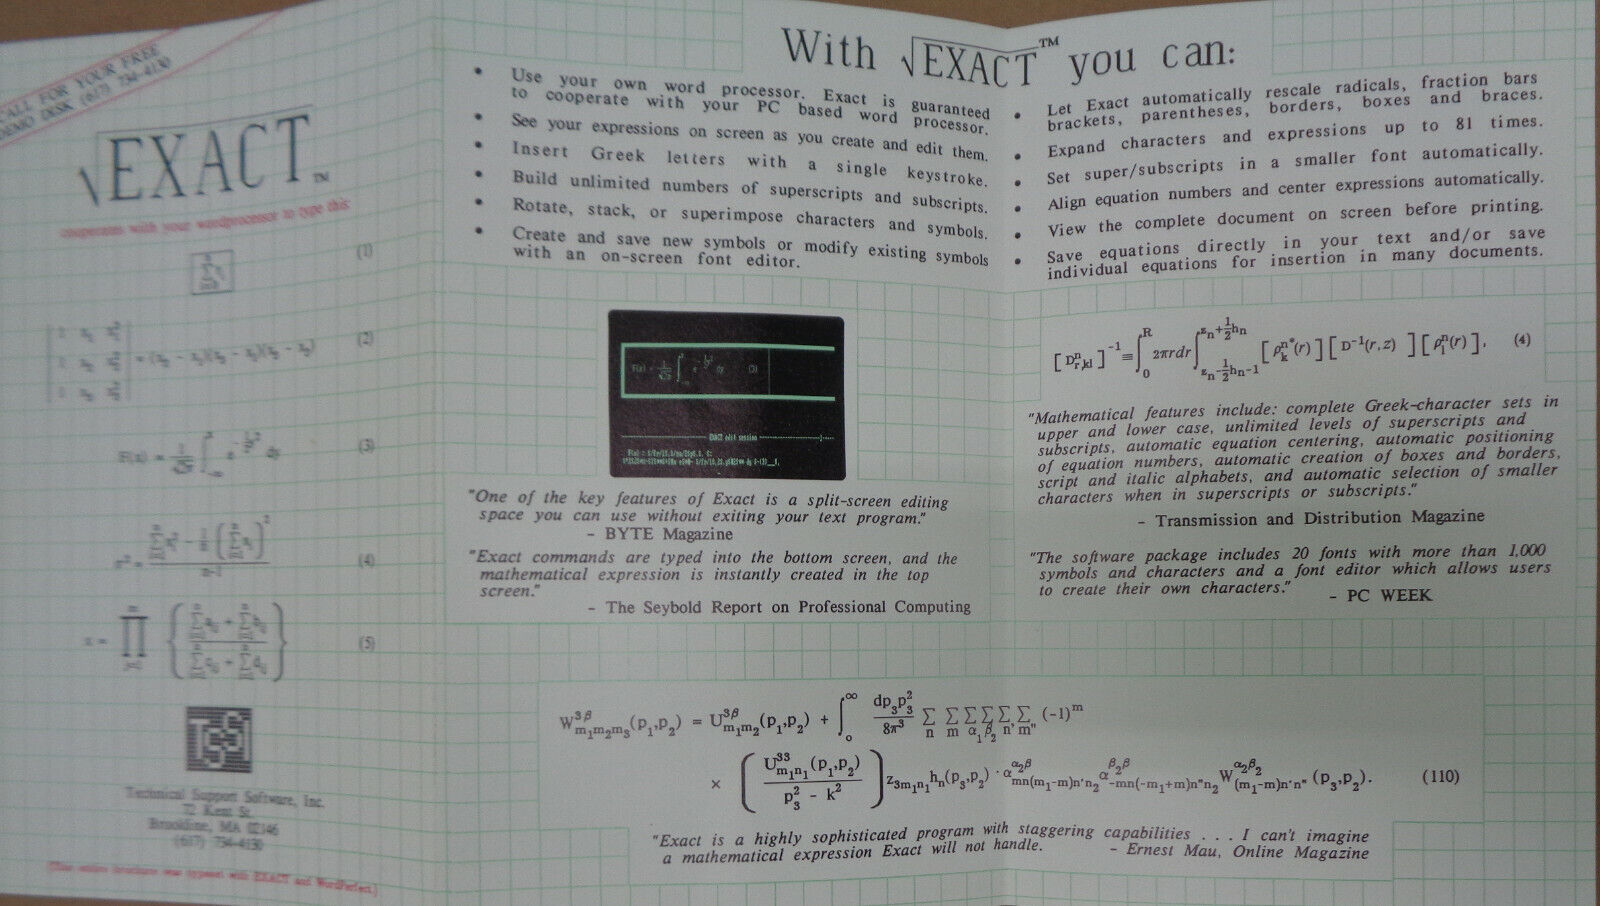 CALL FOR YOUR FREE
DEMO DISK (617) 734-4130
√EXACT™
cooperates with your wordprocessor to type this:
(1)
(2)
(3)
(4)
(5)
TSS
Technical Support Software, Inc.
72 Kent St.
Brookline, MA 02146
(617) 734-4130
(This entire brochure was typeset with EXACT and WordPerfect.)
With √EXACT™ you can:
• Use your own word processor. Exact is guaranteed
to cooperate with your PC based word processor.
• See your expressions on screen as you create and edit them.
• Insert Greek letters with a single keystroke.
• Build unlimited numbers of superscripts and subscripts.
• Rotate, stack, or superimpose characters and symbols.
• Create and save new symbols or modify existing symbols
with an on-screen font editor.
• Let Exact automatically rescale radicals, fraction bars
brackets, parentheses, borders, boxes and braces.
• Expand characters and expressions up to 81 times.
• Set super/subscripts in a smaller font automatically.
• Align equation numbers and center expressions automatically.
• View the complete document on screen before printing.
• Save equations directly in your text and/or save
individual equations for insertion in many documents.
EXACT edit session
"One of the key features of Exact is a split-screen editing
space you can use without exiting your text program."
- BYTE Magazine
"Exact commands are typed into the bottom screen, and the
mathematical expression is instantly created in the top
screen."
- The Seybold Report on Professional Computing
[D^n_{r,kl}]^{-1} ≡ ∫_0^R 2πrdr ∫_{z_n-½h_{n-1}}^{z_n+½h_n} [ρ_k^{n*}(r)][D^{-1}(r,z)][ρ_l^n(r)], (4)
"Mathematical features include: complete Greek-character sets in
upper and lower case, unlimited levels of superscripts and
subscripts, automatic equation centering, automatic positioning
of equation numbers, automatic creation of boxes and borders,
script and italic alphabets, and automatic selection of smaller
characters when in superscripts or subscripts."
- Transmission and Distribution Magazine
"The software package includes 20 fonts with more than 1,000
symbols and characters and a font editor which allows users
to create their own characters."
- PC WEEK
W^{3β}_{m_1m_2m_3}(p_1,p_2) = U^{3β}_{m_1m_2}(p_1,p_2) + ∫_o^∞ dp_3p_3^2/8π^3 Σ_n Σ_m Σ_{α_1} Σ_{β_2} Σ_{n'} Σ_{m''} (-1)^m
× (U^{33}_{m_1n_1}(p_1,p_2) / p_3^2 - k^2) z_{3m_1n_1}h_n(p_3,p_2)·α^{α_2β}_{mn(m_1-m)n'n_2} α^{β_2β}_{-mn(-m_1+m)n''n_2} W^{α_2β_2}_{(m_1-m)n'n''}(p_3,p_2). (110)
"Exact is a highly sophisticated program with staggering capabilities . . . I can't imagine
a mathematical expression Exact will not handle. - Ernest Mau, Online Magazine